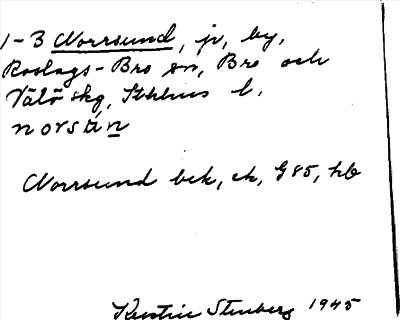 1-3 Norrsund, jr, by,
Roslags-Bro sn, Bro och
Välö skg, Sthlms l.
norsŭn
Norrsund bek, ek, G85, hb
Kerstin Stenberg 1945